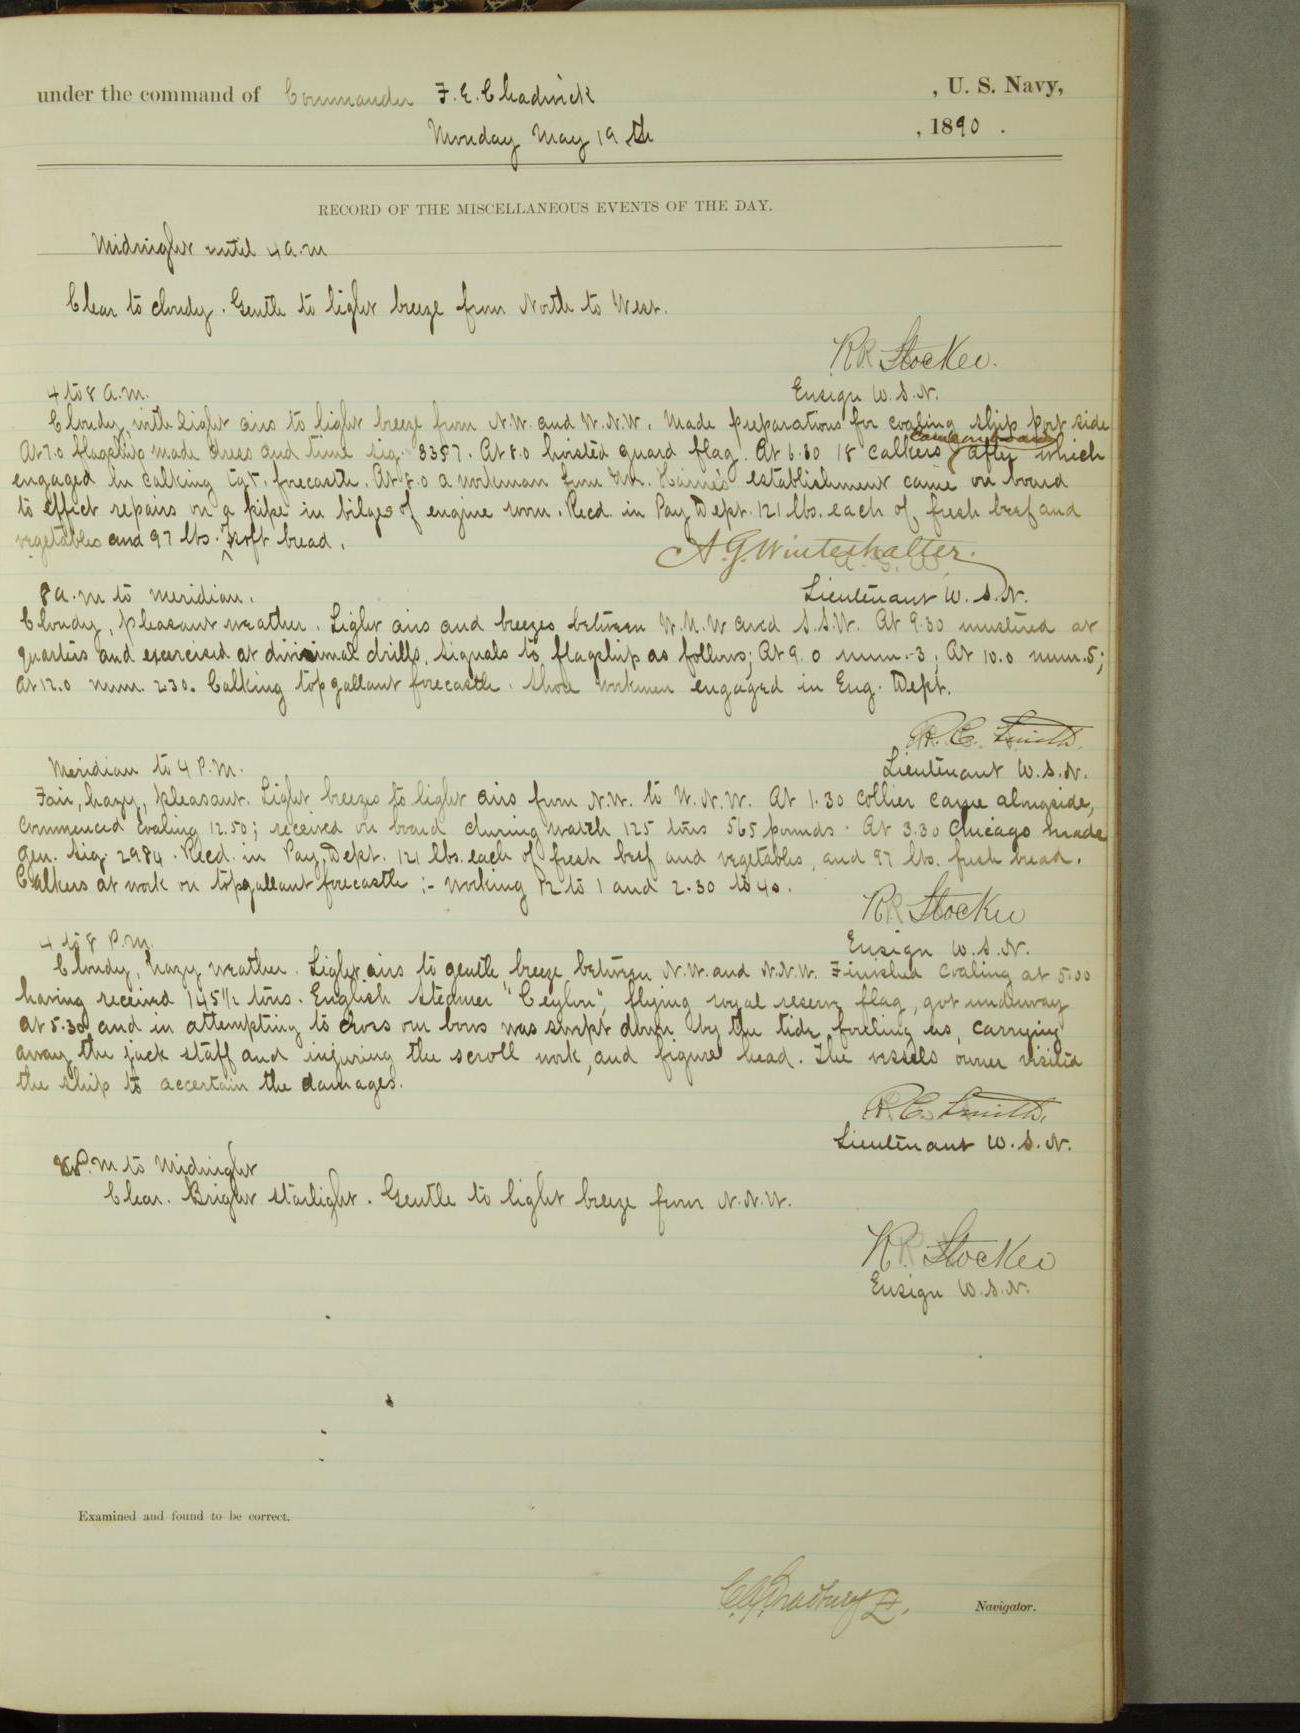 under the command of Commander F. E. Chadwick , U. S. Navy,
Monday May 19th , 1890 .
RECORD OF THE MISCELLANEOUS EVENTS OF THE DAY.
Midnight until 4 a.m
Clear to cloudy. Gentle to light breeze from North to West.
R R Stocker.
Ensign U.S.N.
4 to 8 A.M.
Cloudy, with light airs to light breeze from N.W. and W.N.W. Made preparations for coaling ship port side
came on board
At 7.0 flagship made dress and time sig. 3357. At 8.0 hoisted guard flag. At 6.30 18 calkers after which
engaged in calking tgt. forecastle. At 8.0 a workman from Mr. establishment came on board
to effect repairs on a pipe in bilges of engine room. Recd. in Pay Dept. 121 lbs. each of fresh beef and
vegetables and 97 lbs. soft bread.
A. G. Winterhalter.
Lieutenant U.S.N.
8 a.m to meridian.
Cloudy, pleasant weather. Light airs and breezes between W.N.W and S.S.W. At 9.30 mustered at
quarters and exercised at divisional drills. Signals to flagship as follows; At 9.0 num. 3; At 10.0 num. 5;
at 12.0 num. 230. Calking topgallant forecastle. Shore workmen engaged in Eng. Dept.
R. C. Smith.
Lieutenant U.S.N.
Meridian to 4 P.M.
Fair, hazy, pleasant. Light breezes to light airs from N.W. to W.N.W. At 1.30 collier came alongside,
commenced coaling 12.50; received on board during watch 125 tons 565 pounds. At 3.30 Chicago made
gen. sig. 2984. Recd. in Pay Dept. 121 lbs. each of fresh beef and vegetables, and 97 lbs. fresh bread.
Calkers at work on topgallant forecastle :- working 12 to 1 and 2.30 to 4.0.
R R Stocker
Ensign U.S.N.
4 to 8 P.M.
Cloudy, hazy weather. Light airs to gentle breeze between N.W. and N.N.W. Finished coaling at 5.00
having received 145 1/2 tons. English steamer "Ceylon", flying royal reserve flag, got underway
at 5.30, and in attempting to cross our bows was swept down by the tide, fouling us, carrying
away the jack staff and injuring the scroll work, and figure head. The vessels owner visited
the ship to accertain the damages.
R. C. Smith,
Lieutenant U.S.N.
8 P.M to Midnight
Clear. Bright starlight. Gentle to light breeze from N.N.W.
R R Stocker
Ensign U.S.N.
Examined and found to be correct.
Navigator.